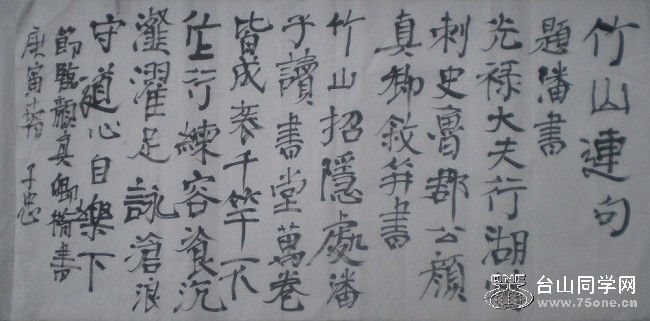 竹山連句
題潘書
光禄大夫行湖州
刺史魯郡公顏
真卿敘并書
竹山招隱處潘
子讀書堂萬卷
皆成袠千竿不
作行練容飡沆
瀣濯足詠滄浪
守道心自樂下
節臨顏真卿楷書
庚寅 子忠
台山同学网
www.75one.cn